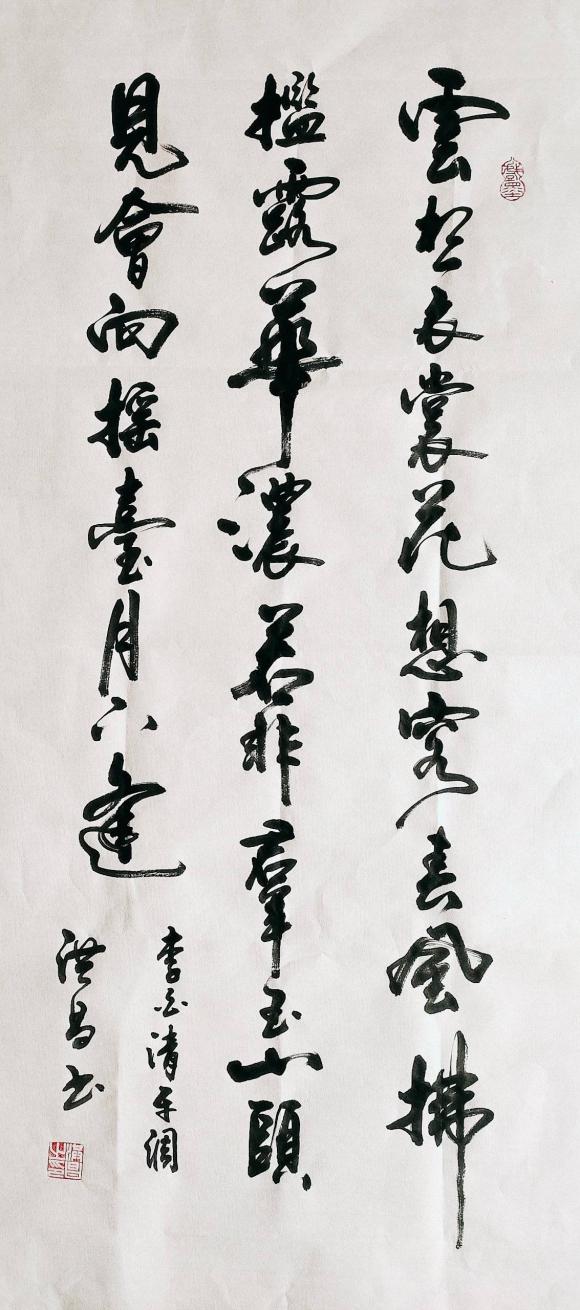 雲想衣裳花想容春風拂
檻露華濃若非羣玉山頭
見會向摇臺月下逢
李白清平調
洪昌书